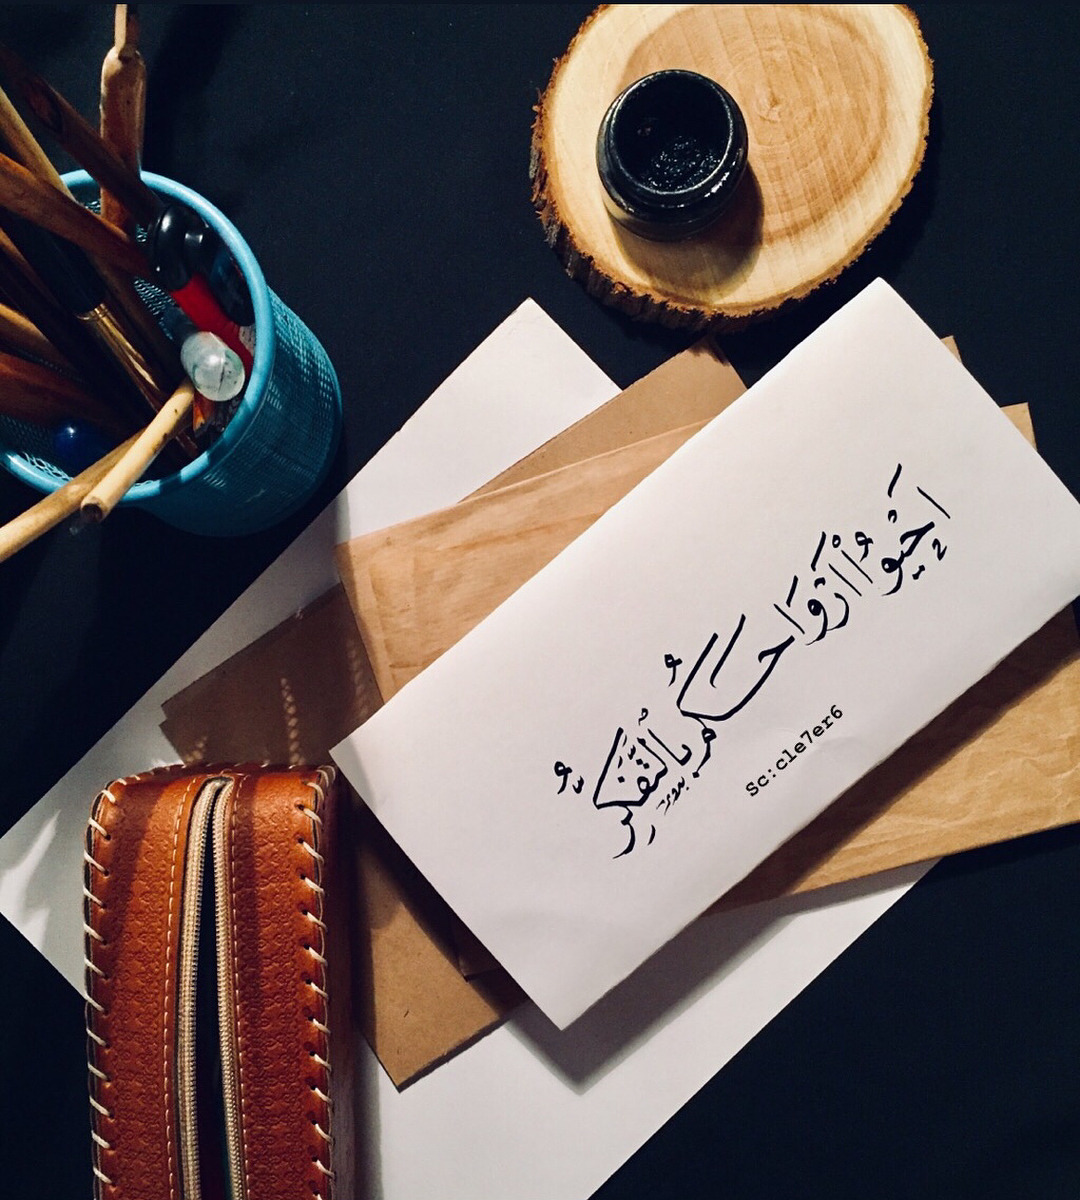 اَحْيُوا اَرْوَاحَكُم بِالتَّفَكُّرِ
Sc:cle7er6